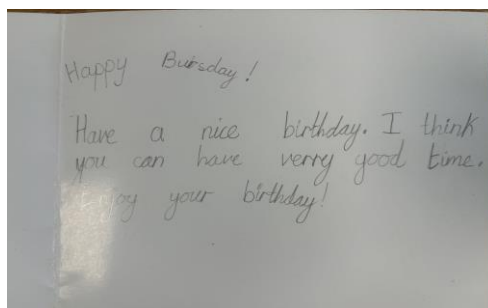 Happy Bursday!
Have a nice birthday. I think
you can have verry good time.
Enjoy your birthday!